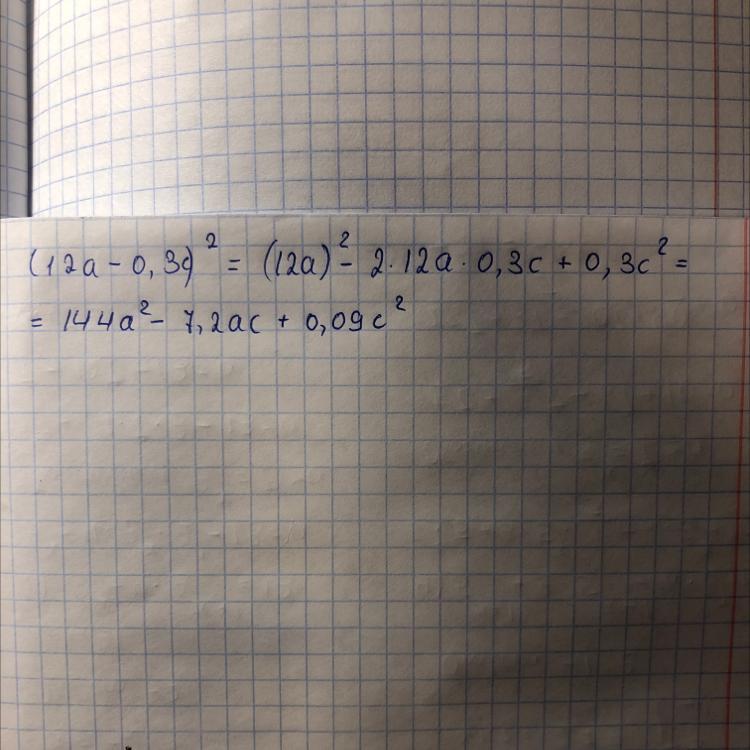 (12a - 0,3c)² = (12a)² - 2·12a·0,3c + 0,3c² =
= 144a² - 7,2ac + 0,09c²